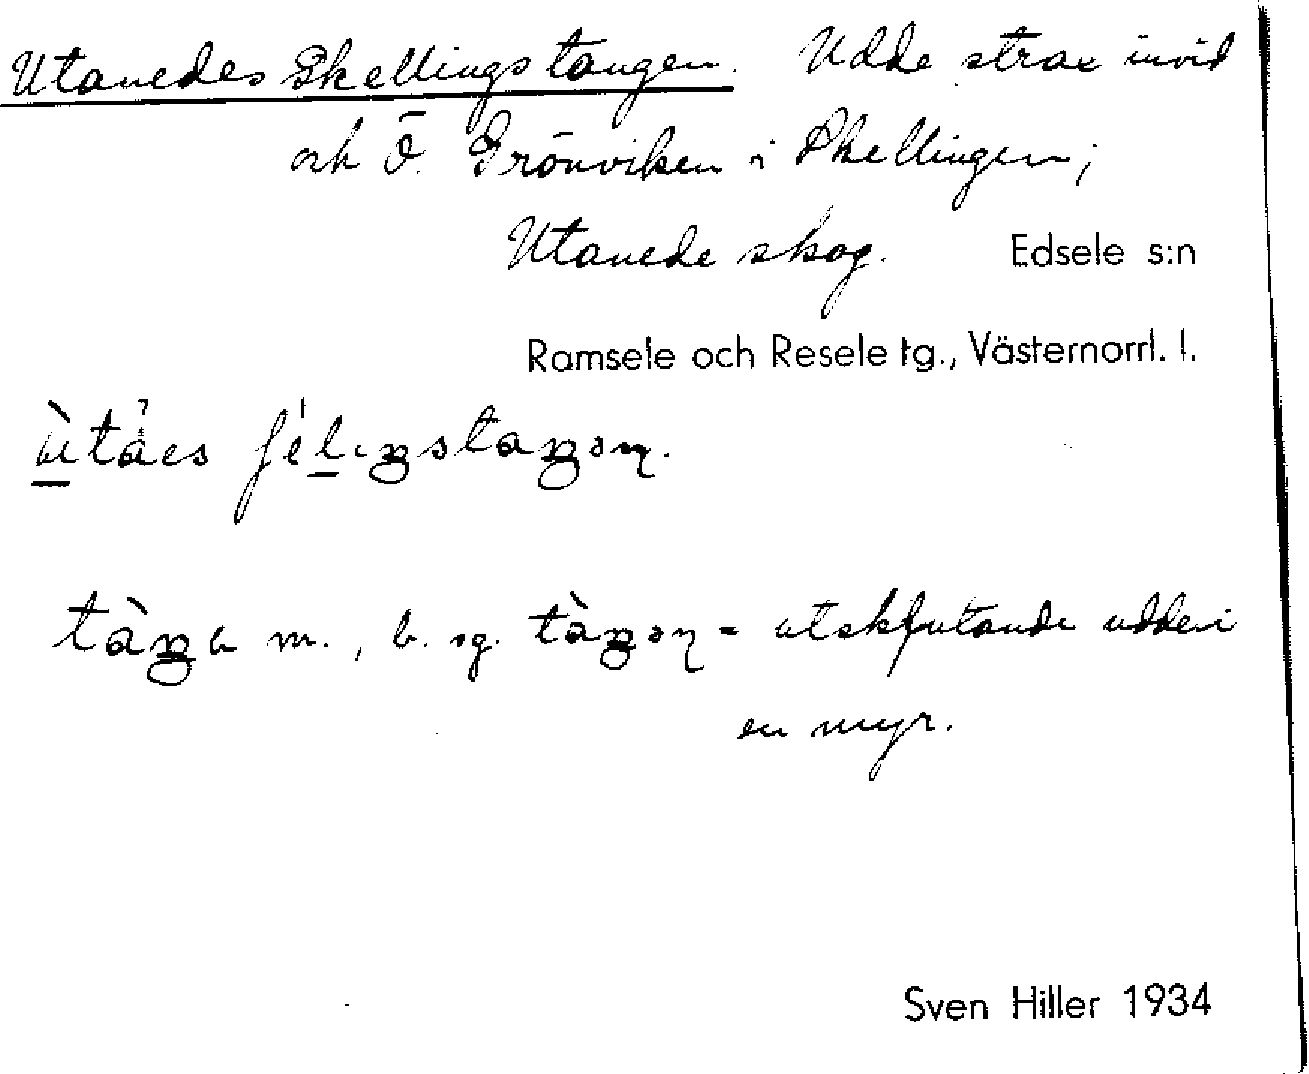 Utanedes Skellingstangen. Udde strax invid
och Ö. Grönviken i Skellingen;
Utanede skog. Edsele s:n
Ramsele och Resele tg., Västernorrl. l.
m., b. sg. = utskjutande udde i
en myr.
Sven Hiller 1934